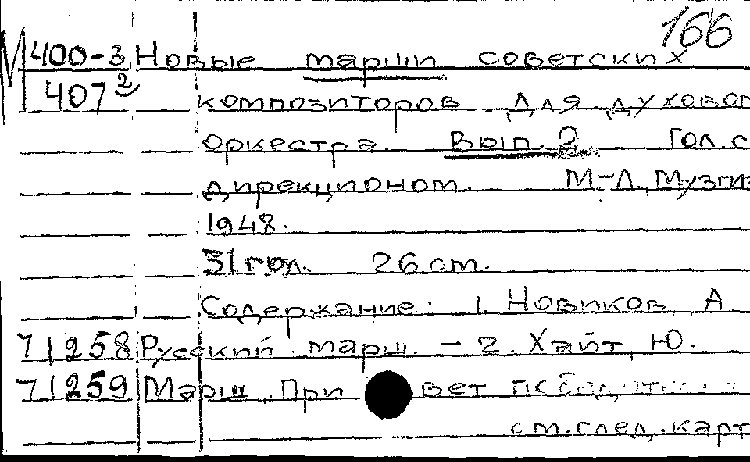 166
М 400-3 Новые марши советских
407² композиторов для духовог
оркестра. Вып. 2 Гол. с
дирекционом. М-Л, Музгиз
1948.
31 гол. 26 см.
Содержание: 1. Новиков, А
71258 Русский марш. – 2. Хайт, Ю.
71259 Марш. При вет
см. след. карт